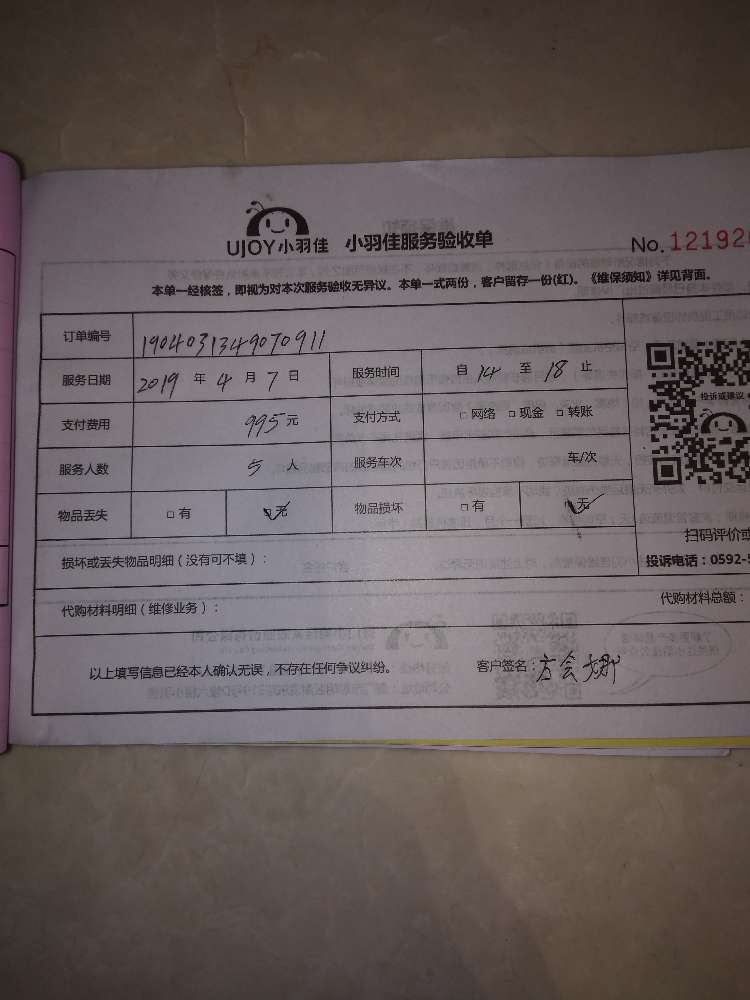 UJOY小羽佳 小羽佳服务验收单
No. 12192
本单一经核签，即视为对本次服务验收无异议。本单一式两份，客户留存一份(红)。《维保须知》详见背面。
订单编号 1904031349070911
服务日期 2019 年 4 月 7 日 服务时间 自 14 至 18 止
支付费用 995 元 支付方式 □ 网络 □ 现金 □ 转账
投诉或建议
服务人数 5 人 服务车次 车/次
物品丢失 □ 有 ☑ 无 物品损坏 □ 有 ☑ 无
扫码评价或
损坏或丢失物品明细（没有可不填）：
投诉电话：0592-5
代购材料明细（维修业务）： 代购材料总额：
以上填写信息已经本人确认无误，不存在任何争议纠纷。 客户签名：方会娜